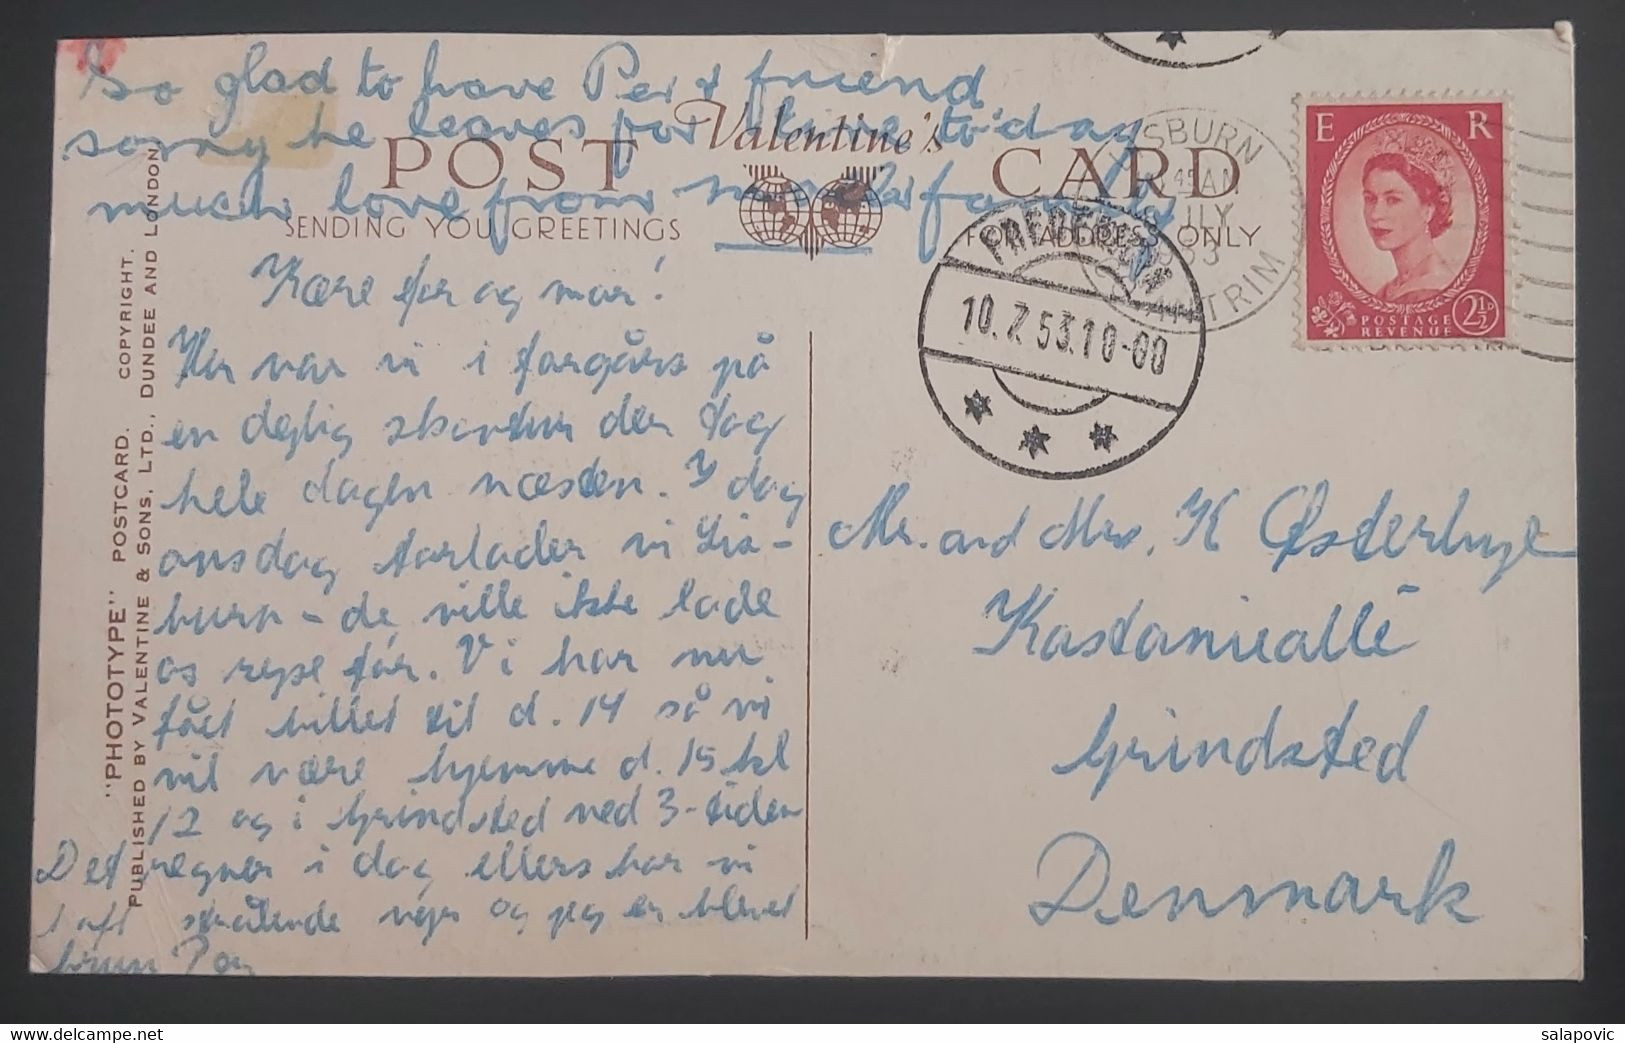 So glad to have Per & friend
sorry he leaves for home to-day
much love from
family
POST Valentine's CARD
SENDING YOU GREETINGS
FOR ADDRESS ONLY
Kære far og mor!
Her var vi i forgårs på
en dejlig skovtur den dag
hele dagen næsten. I dag
onsdag forlader vi Lis-
burn - de ville ikke lade
os rejse før. Vi har nu
fået billet til d. 14 så vi
vil være hjemme d. 15 kl
12 og i Grindsted ved 3-tiden
Det regner i dag ellers har vi
haft strålende vejr og jeg er blevet
brun Per
"PHOTOTYPE" POSTCARD. COPYRIGHT.
PUBLISHED BY VALENTINE & SONS, LTD., DUNDEE AND LONDON
SBURN
45 AM
JLY
1953
CO. ANTRIM
FREDERICIA
10.7.53.10-00
E R
POSTAGE
REVENUE
2½D
Mr. and Mrs. K Østerbye
Kastanieallé
Grindsted
Denmark
salapovic